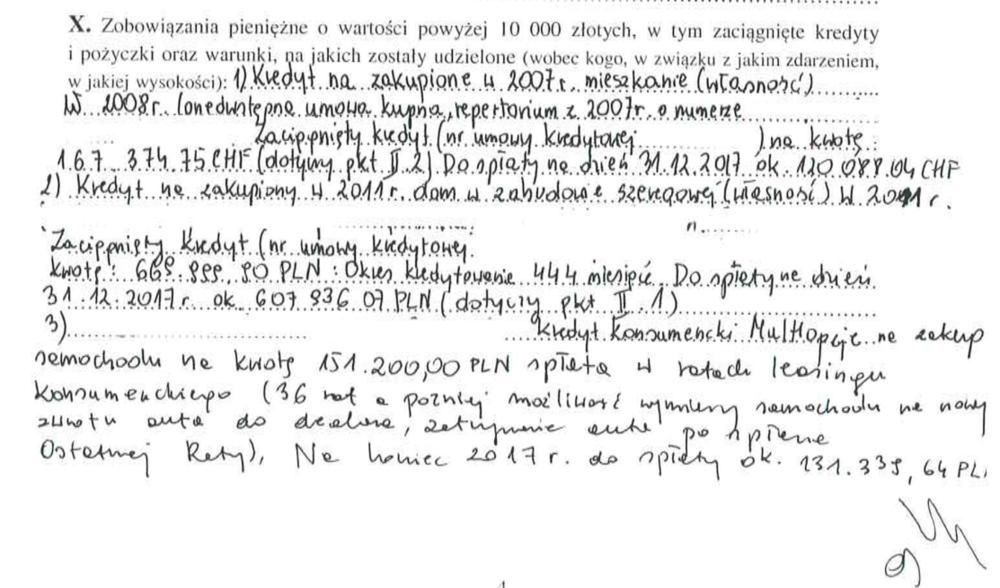 X. Zobowiązania pieniężne o wartości powyżej 10 000 złotych, w tym zaciągnięte kredyty
i pożyczki oraz warunki, na jakich zostały udzielone (wobec kogo, w związku z jakim zdarzeniem,
w jakiej wysokości): 1) Kredyt na zakupione w 2007r. mieszkanie (własność)
W 2008r. umowa kupna, repertorium z 2007r. o numerze
Zaciągnięty kredyt (nr. umowy kredytowej ) na kwotę:
167 374.75 CHF (dotyczy pkt II.2) Do spłaty na dzień 31.12.2017 ok. 120.088.04 CHF
2) Kredyt na zakupiony w 2011r. dom w zabudowie szeregowej (własność) W 2011r.
Zaciągnięty kredyt (nr. umowy kredytowej
kwotę: PLN : Okres kredytowania 444 miesiące Do spłaty na dzień
31.12.2017r. ok 607 936.07 PLN (dotyczy pkt II.1)
3) Kredyt konsumencki MultiOpcja na zakup
samochodu na kwotę 151.200,00 PLN spłata w ratach leasingu
konsumenckiego (36 rat a pozniej możliwość wymiany samochodu na nowy
zwrotu auta do dealera, zatrzymanie auta po spłacie
Ostatniej Raty), Na koniec 2017 r. do spłaty ok. 131.339,64 PL